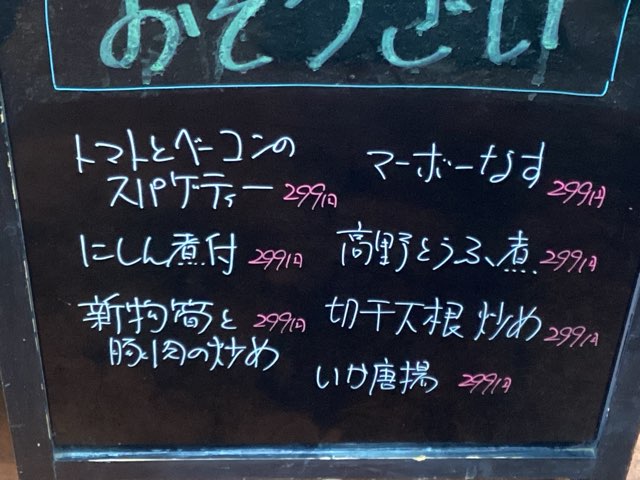 おそうざい
トマトとベーコンの
スパゲーティー 299円
にしん煮付 299円
新物筍と 299円
豚肉の炒め
マーボーなす 299円
高野とうふ煮 299円
切干大根炒め 299円
いか唐揚 299円